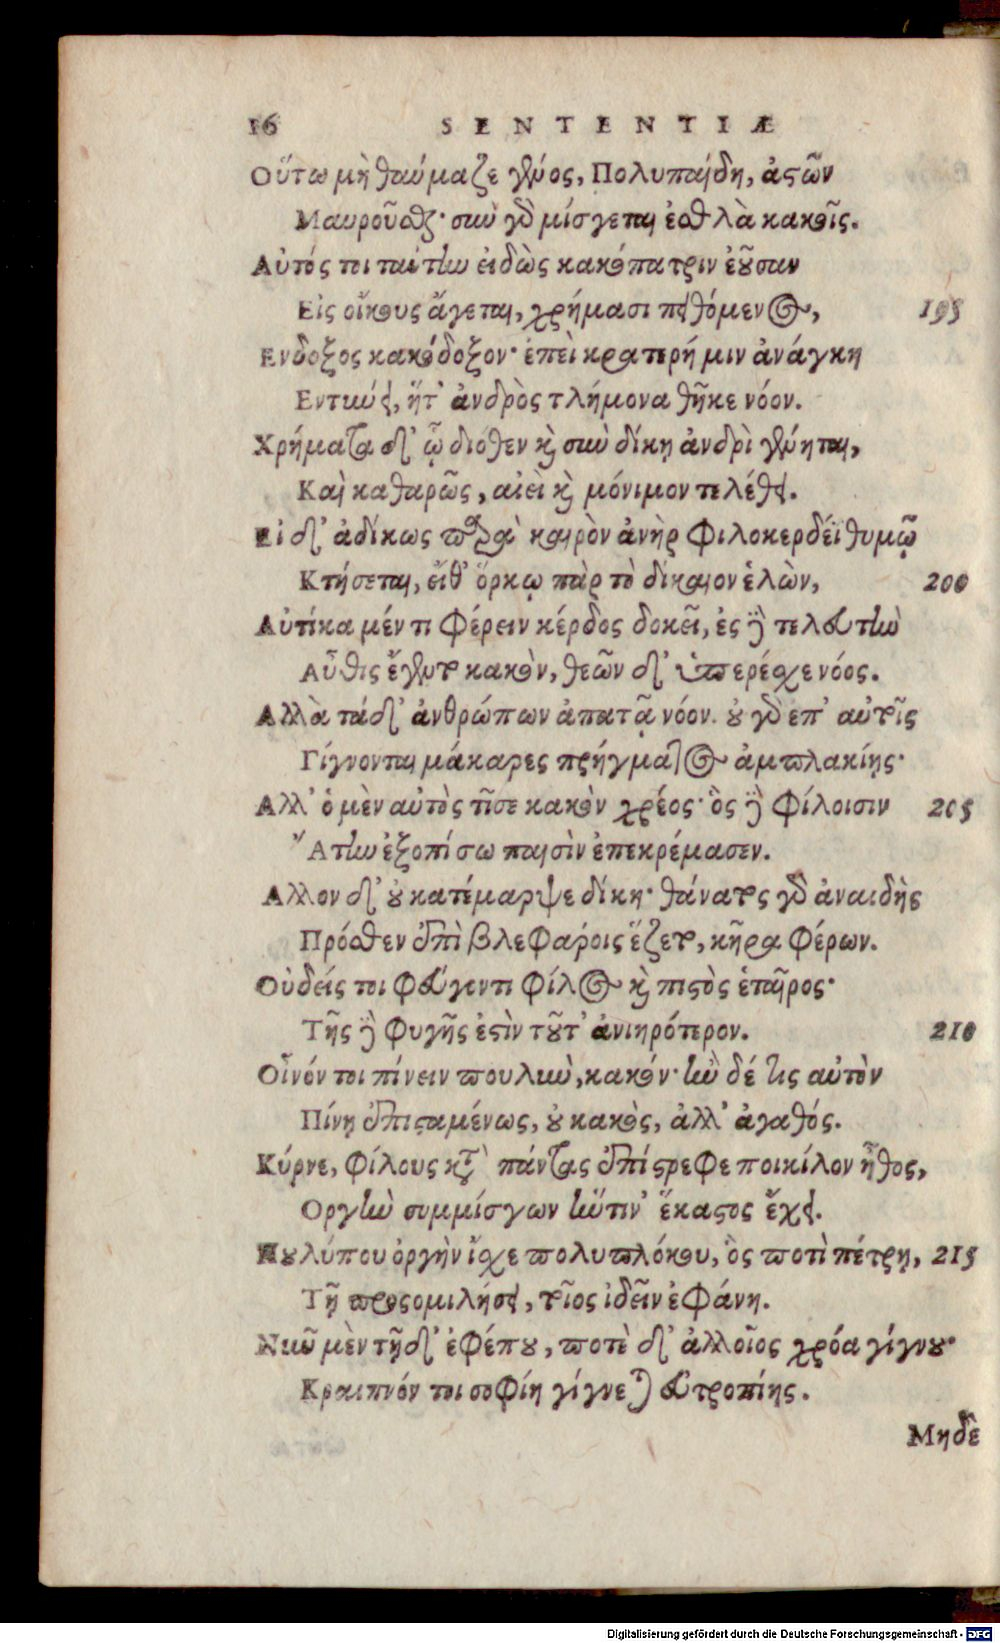 16 SENTENTIÆ
Οὕτω μὴ θαύμαζε γένος, Πολυπαίδη, ἀστῶν
Μαυροῦσθαι· σὺν γὰρ μίσγεται ἐσθλὰ κακοῖς.
Αὐτός τοι ταύτην εἰδὼς κακόπατριν ἐοῦσαν
Εἰς οἴκους ἄγεται, χρήμασι πειθόμενος, 195
Ενδοξος κακόδοξον· ἐπεὶ κρατερή μιν ἀνάγκη
Εντύει, ἥτ' ἀνδρὸς τλήμονα θῆκε νόον.
Χρήματα δ' ᾧ διόθεν καὶ σὺν δίκῃ ἀνδρὶ γένηται,
Καὶ καθαρῶς, αἰεὶ καὶ μόνιμον τελέθει.
Εἰ δ' ἀδίκως παρὰ καιρὸν ἀνὴρ φιλοκερδέϊ θυμῷ
Κτήσεται, εἴθ' ὅρκῳ πὰρ τὸ δίκαιον ἑλὼν, 200
Αὐτίκα μέν τι φέρειν κέρδος δοκεῖ, ἐς δὲ τελευτὴν
Αὖθις ἔγεντο κακὸν, θεῶν δ' ὑπερέσχε νόος.
Αλλὰ τάδ' ἀνθρώπων ἀπατᾷ νόον. οὐ γὰρ ἐπ' αὐτοῖς
Γίγνονται μάκαρες πρήγματος ἀμπλακίης·
Αλλ' ὁ μὲν αὐτὸς τῖσε κακὸν χρέος· ὃς δὲ φίλοισιν 205
Ἄτην ἐξοπίσω παισὶν ἐπεκρέμασεν.
Αλλον δ' οὐ κατέμαρψε δίκη· θάνατος γὰρ ἀναιδὴς
Πρόσθεν ἐπὶ βλεφάροις ἕζετο, κῆρα φέρων.
Οὐδείς τοι φεύγοντι φίλος καὶ πιστὸς ἑταῖρος·
Τῆς δὲ φυγῆς ἐστὶν τοῦτ' ἀνιηρότερον. 210
Οἶνόν τοι πίνειν πουλὺν, κακόν· ἢν δέ τις αὐτὸν
Πίνῃ ἐπισταμένως, οὐ κακὸς, ἀλλ' ἀγαθός.
Κύρνε, φίλους κατὰ πάντας ἐπίστρεφε ποικίλον ἦθος,
Οργὴν συμμίσγων ἥντιν' ἕκαστος ἔχει.
Πουλύπου ὀργὴν ἴσχε πολυπλόκου, ὃς ποτὶ πέτρῃ, 215
Τῇ προσομιλήσει, τοῖος ἰδεῖν ἐφάνη.
Νῦν μὲν τῇδ' ἐφέπου, ποτὲ δ' ἀλλοῖος χρόα γίγνου·
Κραιπνόν τοι σοφίη γίγνεται εὐτροπίης.
Μηδὲ
Digitalisierung gefördert durch die Deutsche Forschungsgemeinschaft - DFG